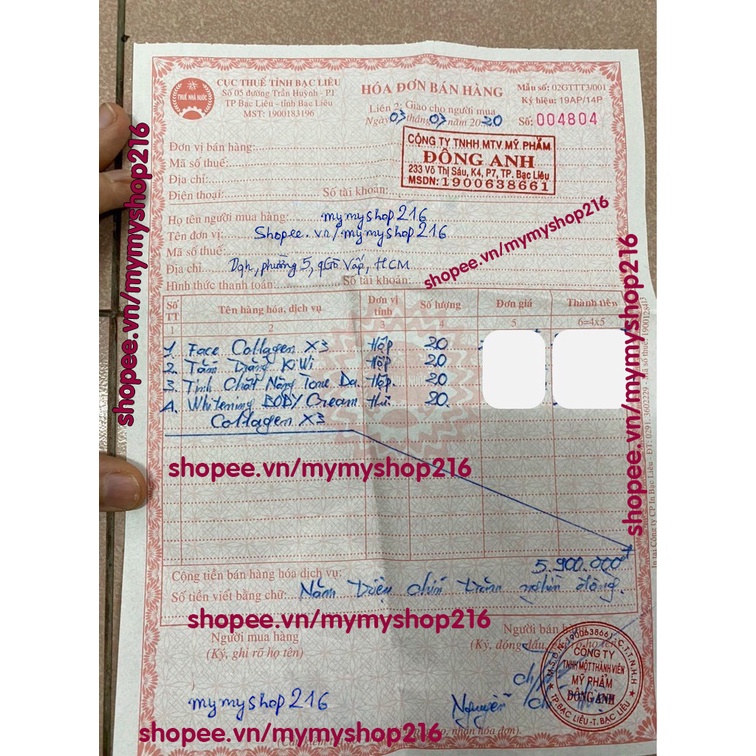 CỤC THUẾ TỈNH BẠC LIÊU
Số 05 đường Trần Huỳnh - P.1
TP Bạc Liêu - tỉnh Bạc Liêu
MST: 1900183196
THUẾ NHÀ NƯỚC
HÓA ĐƠN BÁN HÀNG
Liên 2: Giao cho người mua
Ngày 03 tháng 03 năm 2020
Mẫu số: 02GTTT3/001
Ký hiệu: 19AP/14P
Số: 004804
Đơn vị bán hàng:
Mã số thuế:
Địa chỉ:
Điện thoại: Số tài khoản:
CÔNG TY TNHH MTV MỸ PHẨM
ĐÔNG ANH
233 Võ Thị Sáu, K4, P7, TP. Bạc Liêu
MSDN: 1900638661
Họ tên người mua hàng: mymyshop216
Tên đơn vị: Shopee.vn/mymyshop216
Mã số thuế
Địa chỉ Dqh, phường 5, q Gò Vấp, HCM
Hình thức thanh toán: Số tài khoản:
shopee.vn/mymyshop216
shopee.vn/mymyshop216
shopee.vn/mymyshop216
Số TT Tên hàng hóa, dịch vụ Đơn vị tính Số lượng Đơn giá Thành tiền
1 2 3 4 5 6=4x5
1. Face Collagen X3 Hộp 20
2. Tắm Trắng KiWi Hộp 20
3. Tinh Chất Nâng Tone Da Hộp. 20
4. Whitening BODY Cream Hũ 20.
Collagen X3
shopee.vn/mymyshop216
Cộng tiền bán hàng hóa dịch vụ: 5.900.000đ
Số tiền viết bằng chữ: Năm triệu chín trăm nghìn đồng.
shopee.vn/mymyshop216
Người mua hàng
(Ký, ghi rõ họ tên)
Người bán
(Ký, đóng dấu,
CÔNG TY
TNHH MỘT THÀNH VIÊN
MỸ PHẨM
ĐÔNG ANH
TP.BẠC LIÊU-T. BẠC LIÊU
mymyshop216
Nguyễn
shopee.vn/mymyshop216
nhận hóa đơn)